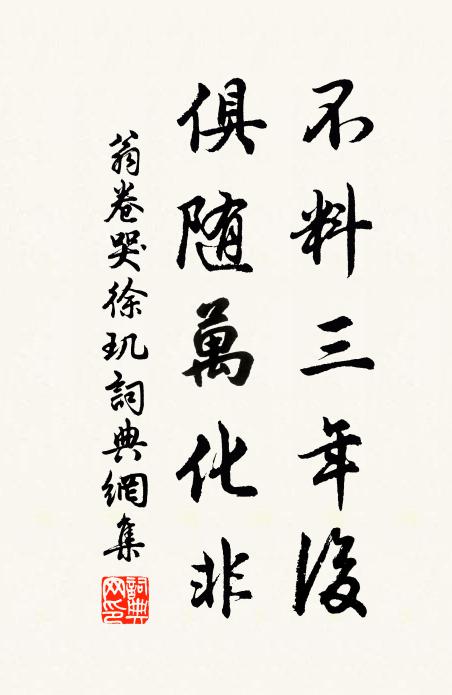 不料三年後
俱随萬化非
翁卷哭徐玑詞典網集
詞典網印